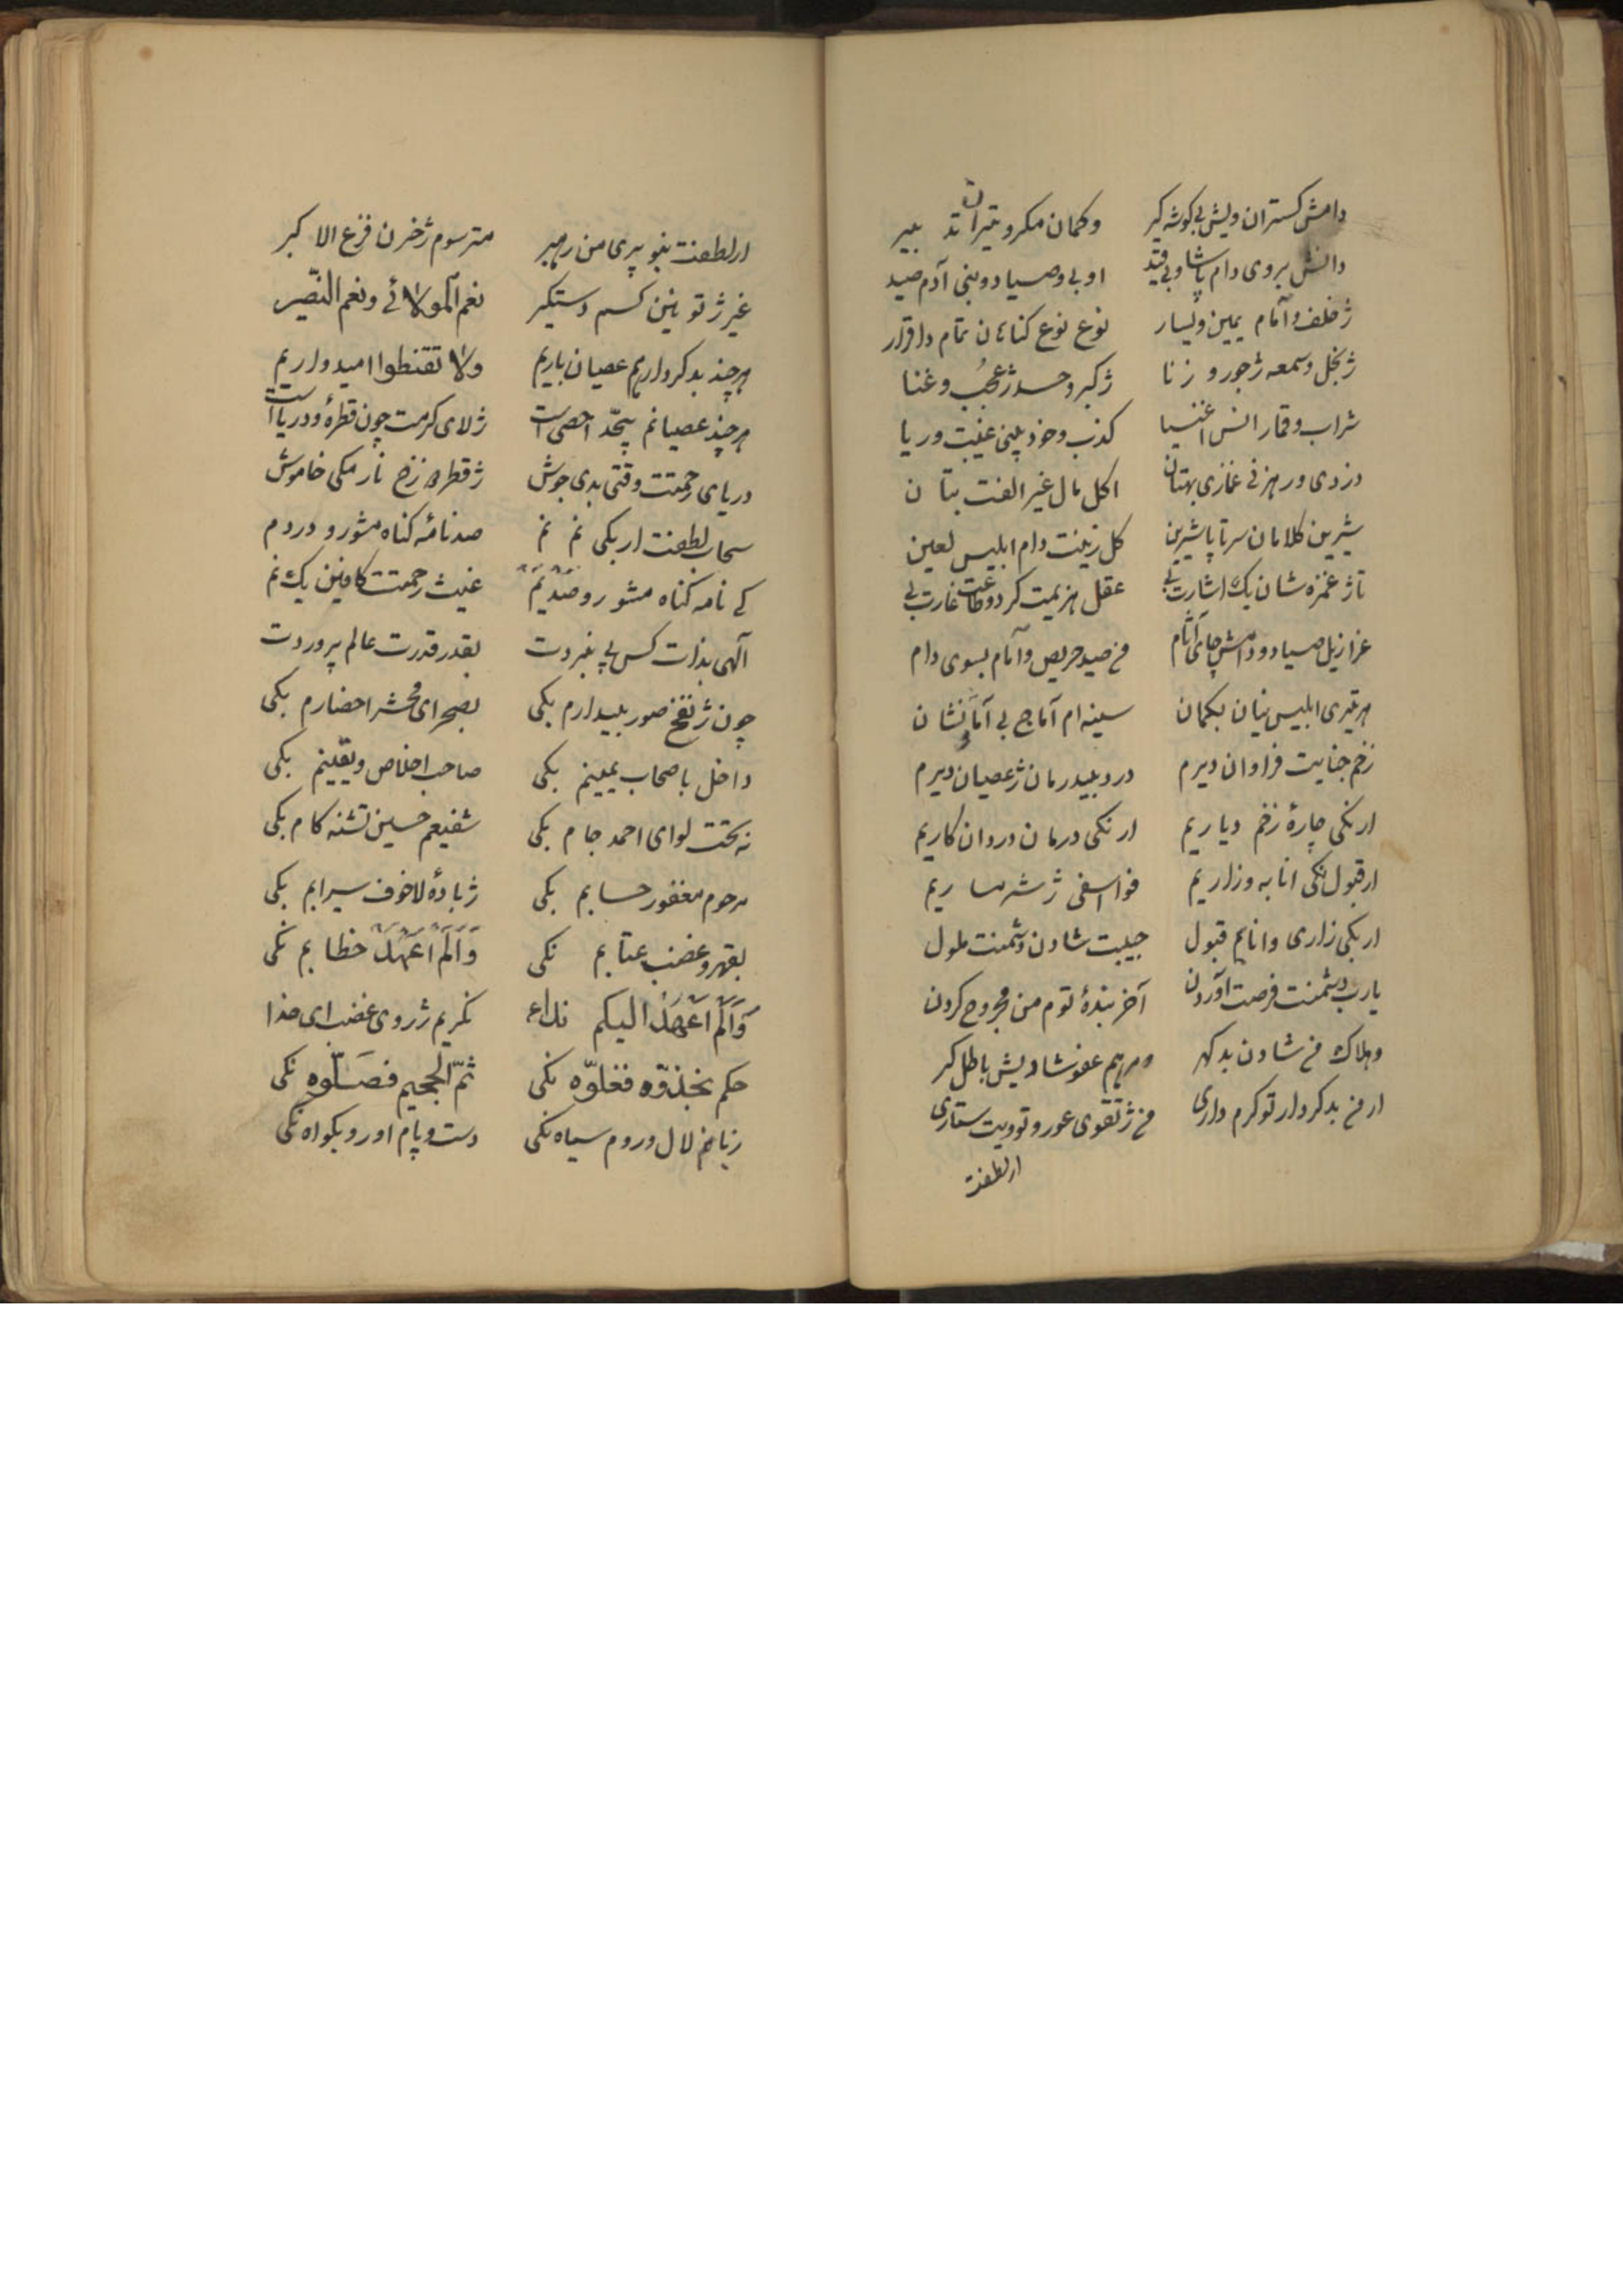 دامش کستران ویش بی کوشه کیر وکمان مکر و تیران تد بیر
دانش بروی دام پاشا و بی قید او بی و صیاد و بنی آدم صید
ژ خلف و امام یمین و یسار نوع نوع کناهان تمام دا قرار
ژ بخل و سمعه ژ جور و زنا ژ کبر و حسد ژ عجب و غنا
شراب و قمار انس اغنیا کذب و خود بینی غیبت و ریا
دزدی و رهزنی غمازی بهتان اکل مال غیر الفت بتان
شیرین کلامان سرتا پا شیرین کل زینت دام ابلیس لعین
تا ژ غمزه شان یک اشارت بی عقل هزیمت کرد و طاعت غارت بی
عزازیل صیاد و دامش جای آثام من صید حریص وآمام بسوی دام
هر تیری ابلیس نیان بکمان سینه ام آماج بی آما نشان
زخم جنایت فراوان دیرم درد بیدرمان ژ عصیان دیرم
ار نکی چارهٔ زخم دیاریم ار نکی درمان دردان کاریم
ار قبول نکی انابه و زاریم فوا اسفی ژ شرمساریم
ار بکی زاری و انابم قبول حبیبت شادن دشمنت ملول
یارب دشمنت فرصت آوردن آخر بندهٔ توم من مجروح کردن
وهلاک من شادن بد کهر و مرهم عفو شادیش باطل کر
ار من بدکردار تو کرم داری من ژ تقوی عور و تو ویت ستاری
ارلطفت
ارلطفت نبو پری من رهبر مترسوم ژ حزن فزع الاکبر
غیر ژ تو نین کسم دستکیر نعم المولائے ونعم النّصیر
هر چند بدکرداریم عصیان باریم ولا تقنطوا امیدواریم
هر چند عصیانم بیحدّ احصی است ژ لای کرمت چون قطرهٔ و دریا است
دریای رحمتت وقتی بدی جوش ژ قطره زخ نار مکی خاموش
سحاب لطفت ار بکی نم نم صد نامهٔ کناه مشور و دردم
کے نامه کناه مشور و صد یم غیث رحمتت کافین یک نم
آلهی بذات کس پی نبردت بقدر قدرت عالم پروردت
چون ژ نفخ صور بیدارم بکی بصحرای محشر احضارم بکی
داخل باصحاب یمینم بکی صاحب اخلاص و یقینم بکی
نه تحت لوای احمد جام بکی شفیعم حسین تشنه کام بکی
مرحوم مغفور حسابم بکی ژ بادهٔ لاخوف سیرابم بکی
بقهر و غضب عتابم نکی وَاَلَم اَعهَد خطابم نکی
وَاَلَم اَعهَد الیکم ندا نکریم ژ روی غضب ای خدا
حکم بخذوّه فغلوّه نکی ثمّ الجحیم فصلّوه نکی
زبانم لال و روم سیاه نکی دست و پام او رو بکواه نکی